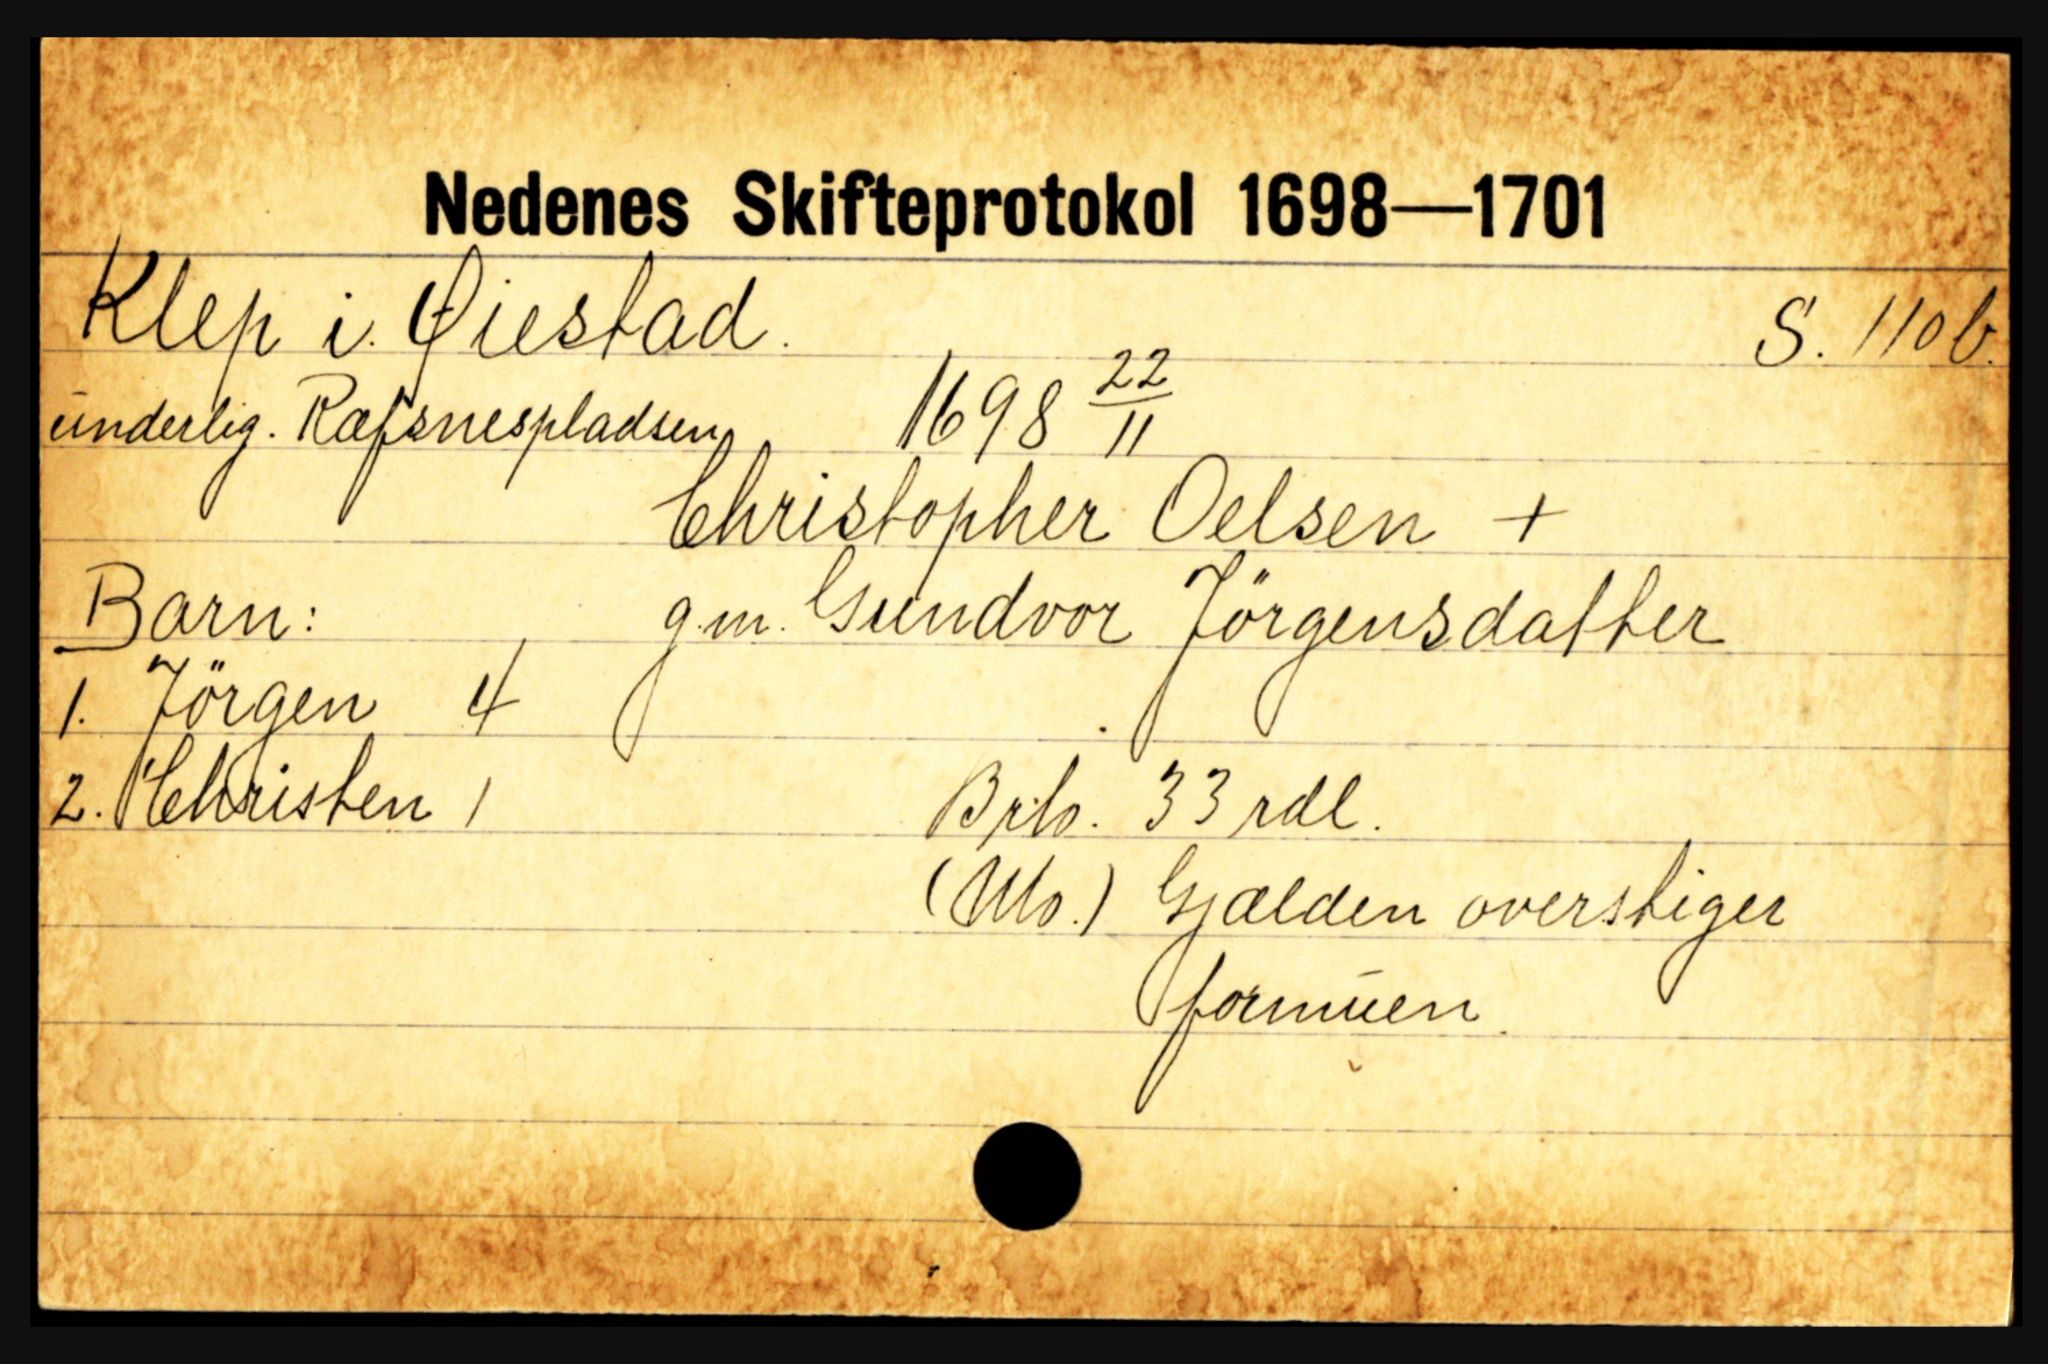 Nedenes Skifteprotokol 1698—1701
Klep i. Øiestad. S. 110b.
underlig. Ræfsnespladsen 1698 22/11
Christopher Oelsen +
Barn: g.m. Gundvor Jörgensdatter
1. Jörgen 4
2. Christen 1 Brto. 33 rdl.
Gjælden overstiger
formuen.